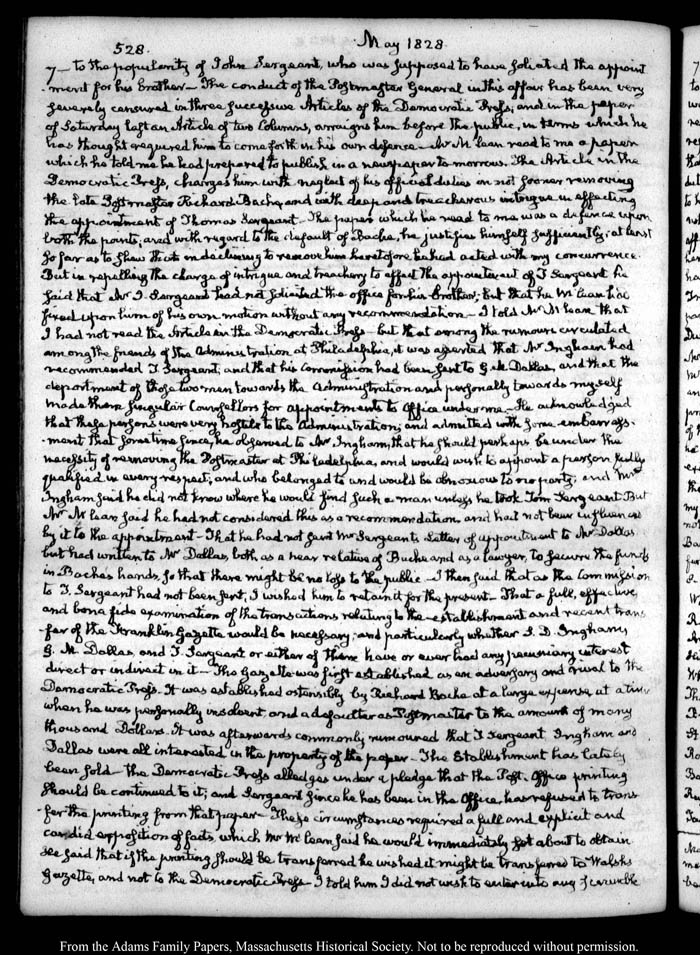 528.
May 1828.
7— to the popularity of John Sergeant, who was supposed to have solicited the appoint
-ment for his brother— The conduct of the Postmaster General in this affair has been very
severely censured in three successive Articles of the Democratic Press; and in the paper
of Saturday last an Article of two Columns, arraigns him before the public, in terms which he
has thought required him to come forth in his own defence— Mr McLean read to me a paper
which he told me he had prepared to publish in a newspaper to-morrow. The Article in the
Democratic Press, charges him with neglect of his official duties in not sooner removing
the late Postmaster Richard Bache, and with deep and treacherous intrigue in effecting
the appointment of Thomas Sergeant— The paper which he read to me was a defence upon
both the points, and with regard to the default of Bache, he justifies himself sufficiently; at least
so far as to shew that in declining to remove him heretofore he had acted with my concurrence.
But in repelling the charge of intrigue and treachery to effect the appointment of T Sergeant he
said that Mr J. Sergeant had not solicited the office for his Brother; but that he McLean had
fixed upon him of his own motion without any recommendation— I told Mr McLean that
I had not read the Article in the Democratic Press— but that among the rumours circulated
among the friends of the Administration at Philadelphia, it was asserted that Mr Ingham had
recommended T. Sergeant, and that his Commission had been sent to G. M Dallas, and that the
deportment of those two men towards the Administration and personally towards myself
made them singular Counsellors for appointments to Office under me— He acknowledged
that these persons were very hostile to the Administration; and admitted with some embarrass-
-ment that some time since, he observed to Mr Ingham, that he should perhaps be under the
necessity of removing the Postmaster at Philadelphia, and would wish to appoint a person fully
qualified in every respect, and who belonged to and would be obnoxious to no party, and Mr
Ingham said he did not know where he would find such a man unless he took Tom Sergeant. But
Mr McLean said he had not considered this as a recommendation, and had not been influenced
by it to the appointment— That he had not sent Mr Sergeant's Letter of appointment to Mr Dallas
but had written to Mr Dallas, both as a near relative of Bache and as a lawyer, to secure the funds
in Bache's hands, so that there might be no loss to the public— I then said that as the Commission
to T. Sergeant had not been sent, I wished him to retain it for the present— That a full, effective,
and bona fide examination of the transactions relating to the establishment and recent trans
-fer of the Franklin Gazette would be necessary; and particularly whether S. D. Ingham,
G. M. Dallas, and T. Sergeant or either of them have or ever had any pecuniary interest
direct or indirect in it— The Gazette was first established as an adversary and rival to the
Democratic Press. It was established ostensibly by Richard Bache at a large expense, at a time
when he was personally insolvent, and a defaulter as Postmaster to the amount of many
thousand Dollars. It was afterwards commonly rumoured that T Sergeant Ingham and
Dallas were all interested in the property of the paper— The Establishment has lately
been sold— the Democratic Press alledges under a pledge that the Post-Office printing
should be continued to it; and Sergeant since he has been in the Office, has refused to trans
-fer the printing from that paper— These circumstances required a full and explicit and
candid exposition of facts, which Mr McLean said he would immediately set about to obtain
He said that if the printing should be transferred he wished it might be transferred to Walsh's
Gazette, and not to the Democratic Press— I told him I did not wish to enter into any scramble
From the Adams Family Papers, Massachusetts Historical Society. Not to be reproduced without permission.